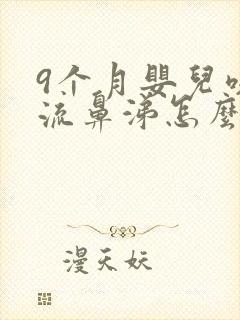 9个月嬰兒咳
流鼻涕怎麼
漫天妖